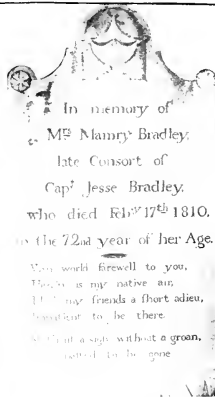 In memory of
Mrs Mamry Bradley,
late Consort of
Capt Jesse Bradley,
who died Febry 17th 1810.
in the 72nd year of her Age.
world farewell to you,
is my native air,
my friends a ſhort adieu,
to be there.
a sigh without a groan,
to be gone